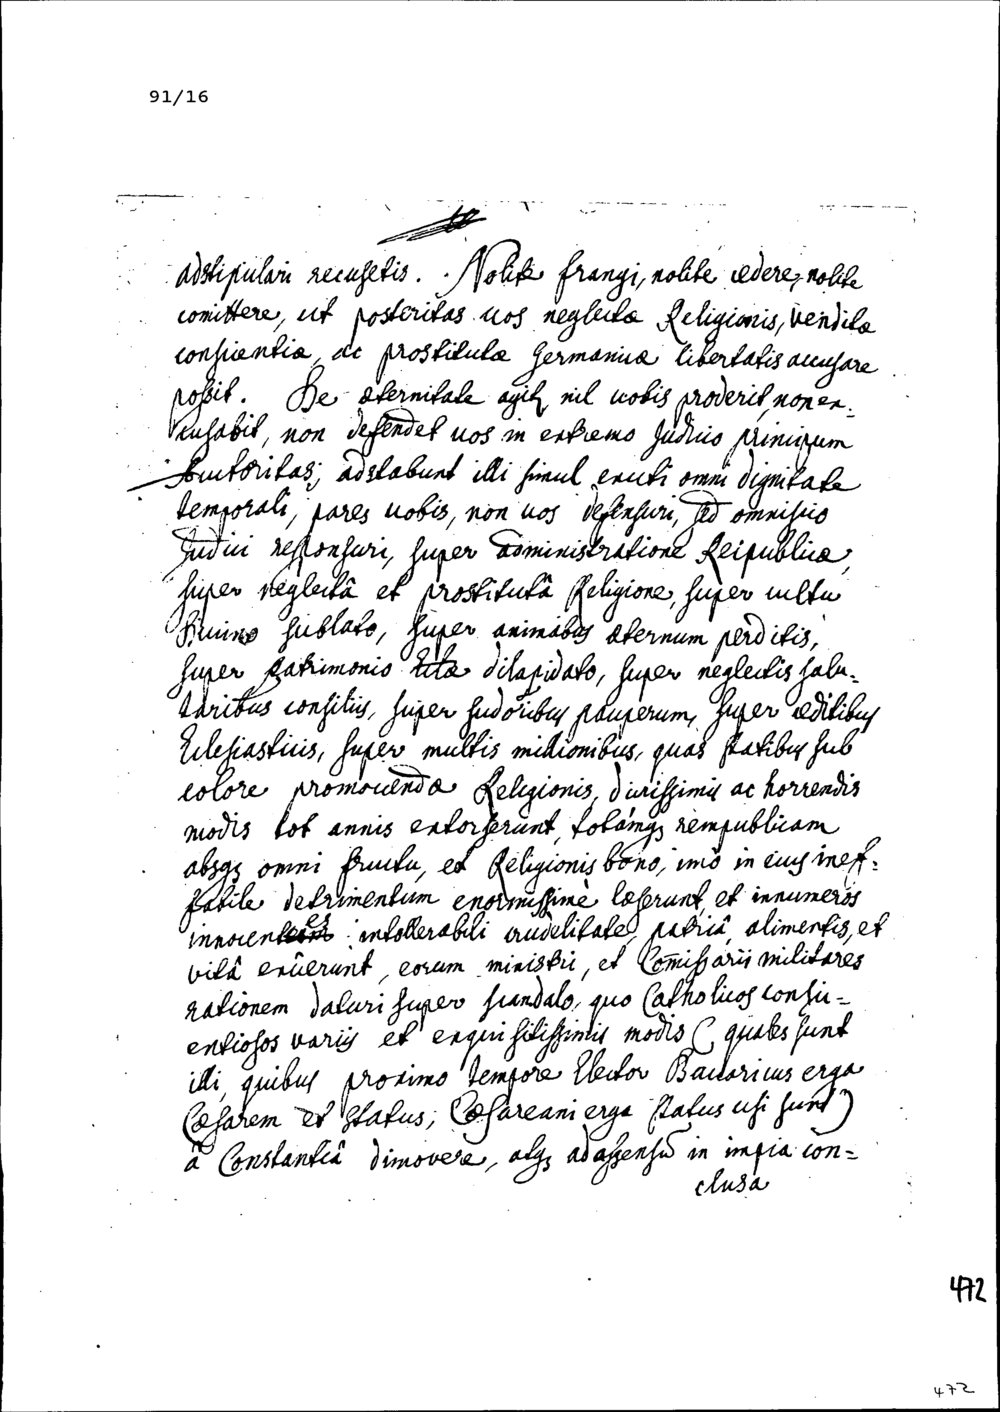 91/16
adstipulari recusetis. Nolite frangi, nolite cedere, nolite
comittere, ut posteritas uos neglectæ Religionis, venditæ
conscientiæ, ac prostitutæ Germanicæ libertatis accusare
possit. De æternitate agitur, nil uobis proderit, non ex=
cusabit, non defendet uos in extremo Judicio principum
Autoritas; adstabunt illi simul exuti omni dignitate
temporali, pares uobis, non uos defensuri, sed omniscio
Judici responsuri, super administratione Reipublicæ,
super neglectâ et prostitutâ Religione, super cultu
Diuino sublato, super animabus æternum perditis,
super patrimonio dilapidato, super neglectis salu=
taribus consiliis, super sudoribus pauperum, super reditibus
Eclesiasticis, super multis milionibus, quas statibus sub
colore promouendæ Religionis, durissimis ac horrendis
modis tot annis extorserunt, totámq3 rempublicam
absq3 omni fructu, et Religionis bono, imò in eius inef=
fabile detrimentum enormissimè læserunt, et innumeros
innocentes intollerabili crudelitate, patriâ, alimentis, et
vitâ exûerunt, eorum ministri, et Comissarii militares
rationem daturi super scandalo, quo Catholicos consci=
entiosos variis et exquisitissimis modis (quales sunt
illi, quibus proximo tempore Elector Bauaricus erga
Cæsarem et status, Cæsareani erga status usi sunt)
â Constantiâ dimovere, atq3 ad assensũ in impia con=
clusa
472
472